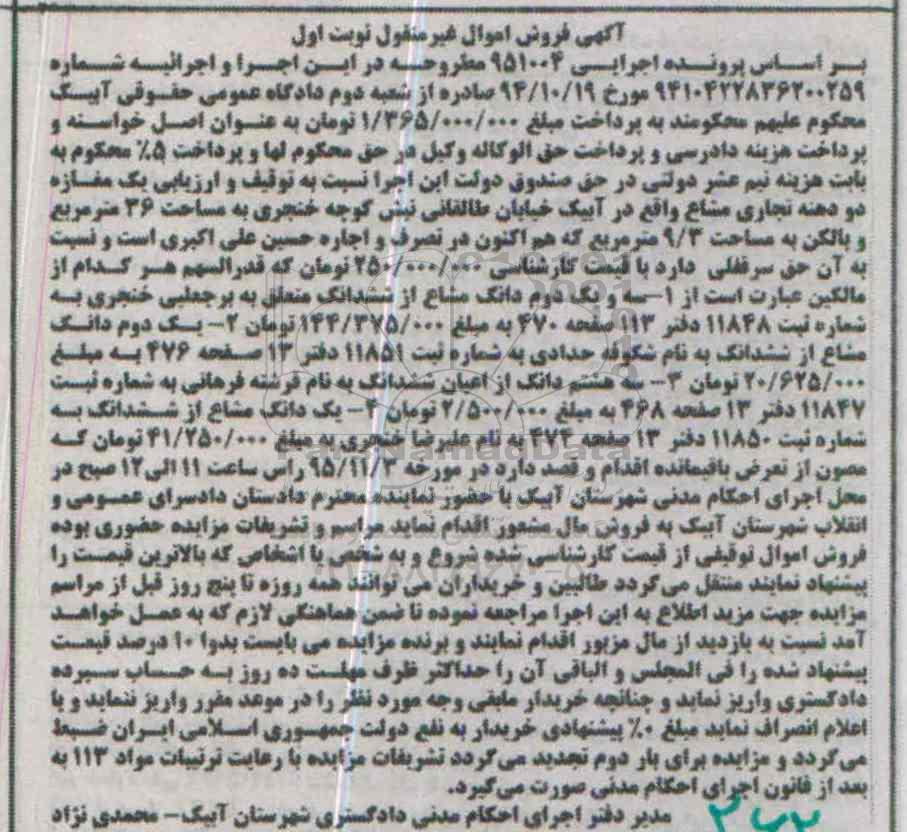 آگهی فروش اموال غیرمنقول نوبت اول
بر اساس پرونده اجرایی ۹۵۱۰۰۴ مطروحه در این اجرا و اجرائیه شماره
۹۴۱۰۴۲۲۸۳۶۲۰۰۲۵۹ مورخ ۹۴/۱۰/۱۹ صادره از شعبه دوم دادگاه عمومی حقوقی آبیک
محکوم علیهم محکومند به پرداخت مبلغ ۱/۳۶۵/۰۰۰/۰۰۰ تومان به عنوان اصل خواسته و
پرداخت هزینه دادرسی و پرداخت حق الوکاله وکیل در حق محکوم لها و پرداخت ۵٪ محکوم به
بابت هزینه نیم عشر دولتی در حق صندوق دولت این اجرا نسبت به توقیف و ارزیابی یک مغازه
دو دهنه تجاری مشاع واقع در آبیک خیابان طالقانی نبش کوچه خنجری به مساحت ۳۶ مترمربع
و بالکن به مساحت ۹/۳ مترمربع که هم اکنون در تصرف و اجاره حسین علی اکبری است و نسبت
به آن حق سرقفلی دارد با قیمت کارشناسی ۲۵۰/۰۰۰/۰۰۰ تومان که قدرالسهم هر کدام از
مالکین عبارت است از ۱-سه و یک دوم دانگ مشاع از ششدانگ متعلق به برجعلی خنجری به
شماره ثبت ۱۱۸۴۸ دفتر ۱۱۳ صفحه ۴۷۰ به مبلغ ۱۴۴/۳۷۵/۰۰۰ تومان ۲- یک دوم دانگ
مشاع از ششدانگ به نام شکوفه حدادی به شماره ثبت ۱۱۸۵۱ دفتر ۱۳ صفحه ۴۷۶ به مبلغ
۲۰/۶۲۵/۰۰۰ تومان ۳- سه هشتم دانگ از اعیان ششدانگ به نام فرشته فرهانی به شماره ثبت
۱۱۸۴۷ دفتر ۱۳ صفحه ۴۶۸ به مبلغ ۲/۵۰۰/۰۰۰ تومان ۴- یک دانگ مشاع از ششدانگ به
شماره ثبت ۱۱۸۵۰ دفتر ۱۳ صفحه ۴۷۴ به نام علیرضا خنجری به مبلغ ۴۱/۲۵۰/۰۰۰ تومان که
مصون از تعرض باقیمانده اقدام و قصد دارد در مورخه ۹۵/۱۱/۳ راس ساعت ۱۱ الی ۱۲ صبح در
محل اجرای احکام مدنی شهرستان آبیک با حضور نماینده محترم دادستان دادسرای عمومی و
انقلاب شهرستان آبیک به فروش مال مشعور اقدام نماید مراسم و تشریفات مزایده حضوری بوده
فروش اموال توقیفی از قیمت کارشناسی شده شروع و به شخص یا اشخاص که بالاترین قیمت را
پیشنهاد نمایند منتقل می گردد طالبین و خریداران می توانند همه روزه تا پنج روز قبل از مراسم
مزایده جهت مزید اطلاع به این اجرا مراجعه نموده تا ضمن هماهنگی لازم که به عمل خواهد
آمد نسبت به بازدید از مال مزبور اقدام نمایند و برنده مزایده می بایست بدوا ۱۰ درصد قیمت
پیشنهاد شده را فی المجلس و الباقی آن را حداکثر ظرف مهلت ده روز به حساب سپرده
دادگستری واریز نماید و چنانچه خریدار مابقی وجه مورد نظر را در موعد مقرر واریز ننماید و یا
اعلام انصراف نماید مبلغ ۰٪ پیشنهادی خریدار به نفع دولت جمهوری اسلامی ایران ضبط
می گردد و مزایده برای بار دوم تجدید می گردد تشریفات مزایده با رعایت ترتیبات مواد ۱۱۳ به
بعد از قانون اجرای احکام مدنی صورت می گیرد.
مدیر دفتر اجرای احکام مدنی دادگستری شهرستان آبیک- محمدی نژاد
ParsNamadData